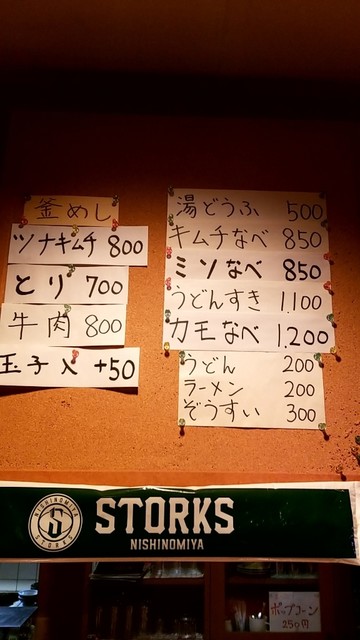 釜めし
ツナキムチ 800
とり 700
牛肉 800
玉子入 +50
湯どうふ 500
キムチなべ 850
ミソなべ 850
うどんすき 1,100
カモなべ 1,200
うどん 200
ラーメン 200
ぞうすい 300
NISHINOMIYA
S
STORKS
STORKS
NISHINOMIYA
ポップコーン
250円